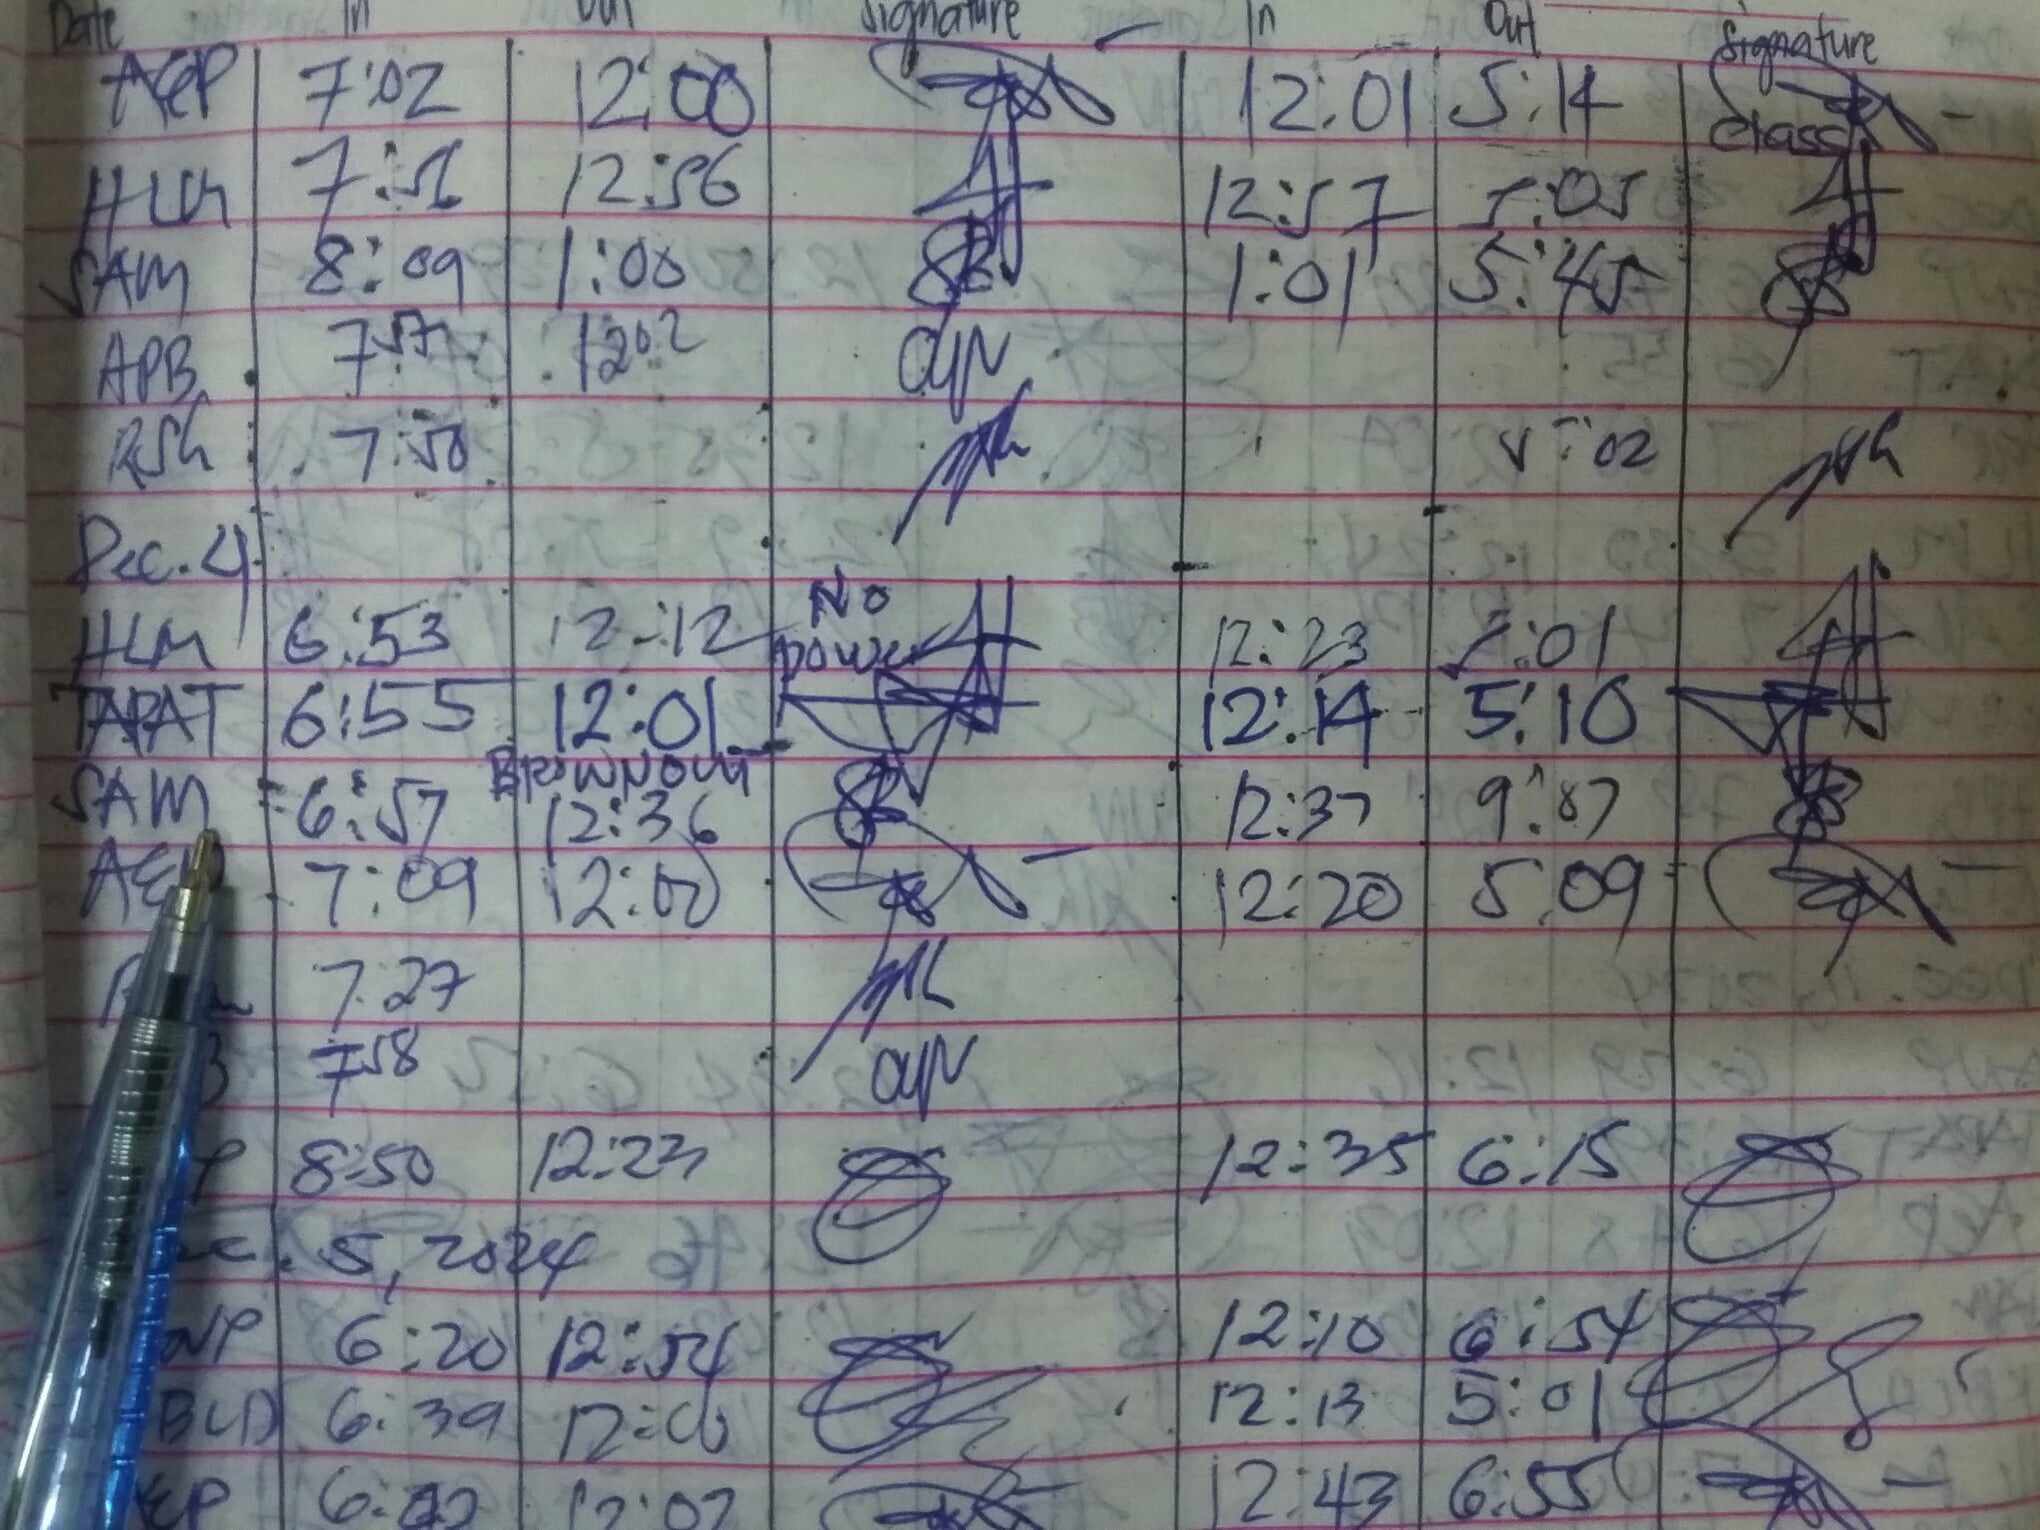 Date In Out Signature In Out Signature
AEP 7:02 12:00 12:01 5:14
Class
HLM 7:56 12:56 12:57 5:05
SAM 8:09 1:00 1:01 5:45
APB 7:57 12:02
RSh 7:50 5:02
Dec. 4
No
HLM 6:53 12:12 power 12:23 5:01
TAPAT 6:55 12:01 12:14 5:10
BROWNOUT
SAM 6:57 12:36 12:37
AE 7:09 12:00 12:20 5:09
7:27
7:58
8:50 12:23 12:35 6:15
5, 2024
NP 6:20 12:54 12:10 6:54
BLD 6:39 12:00 12:13 5:01
EP 12:02 12:43 6:55